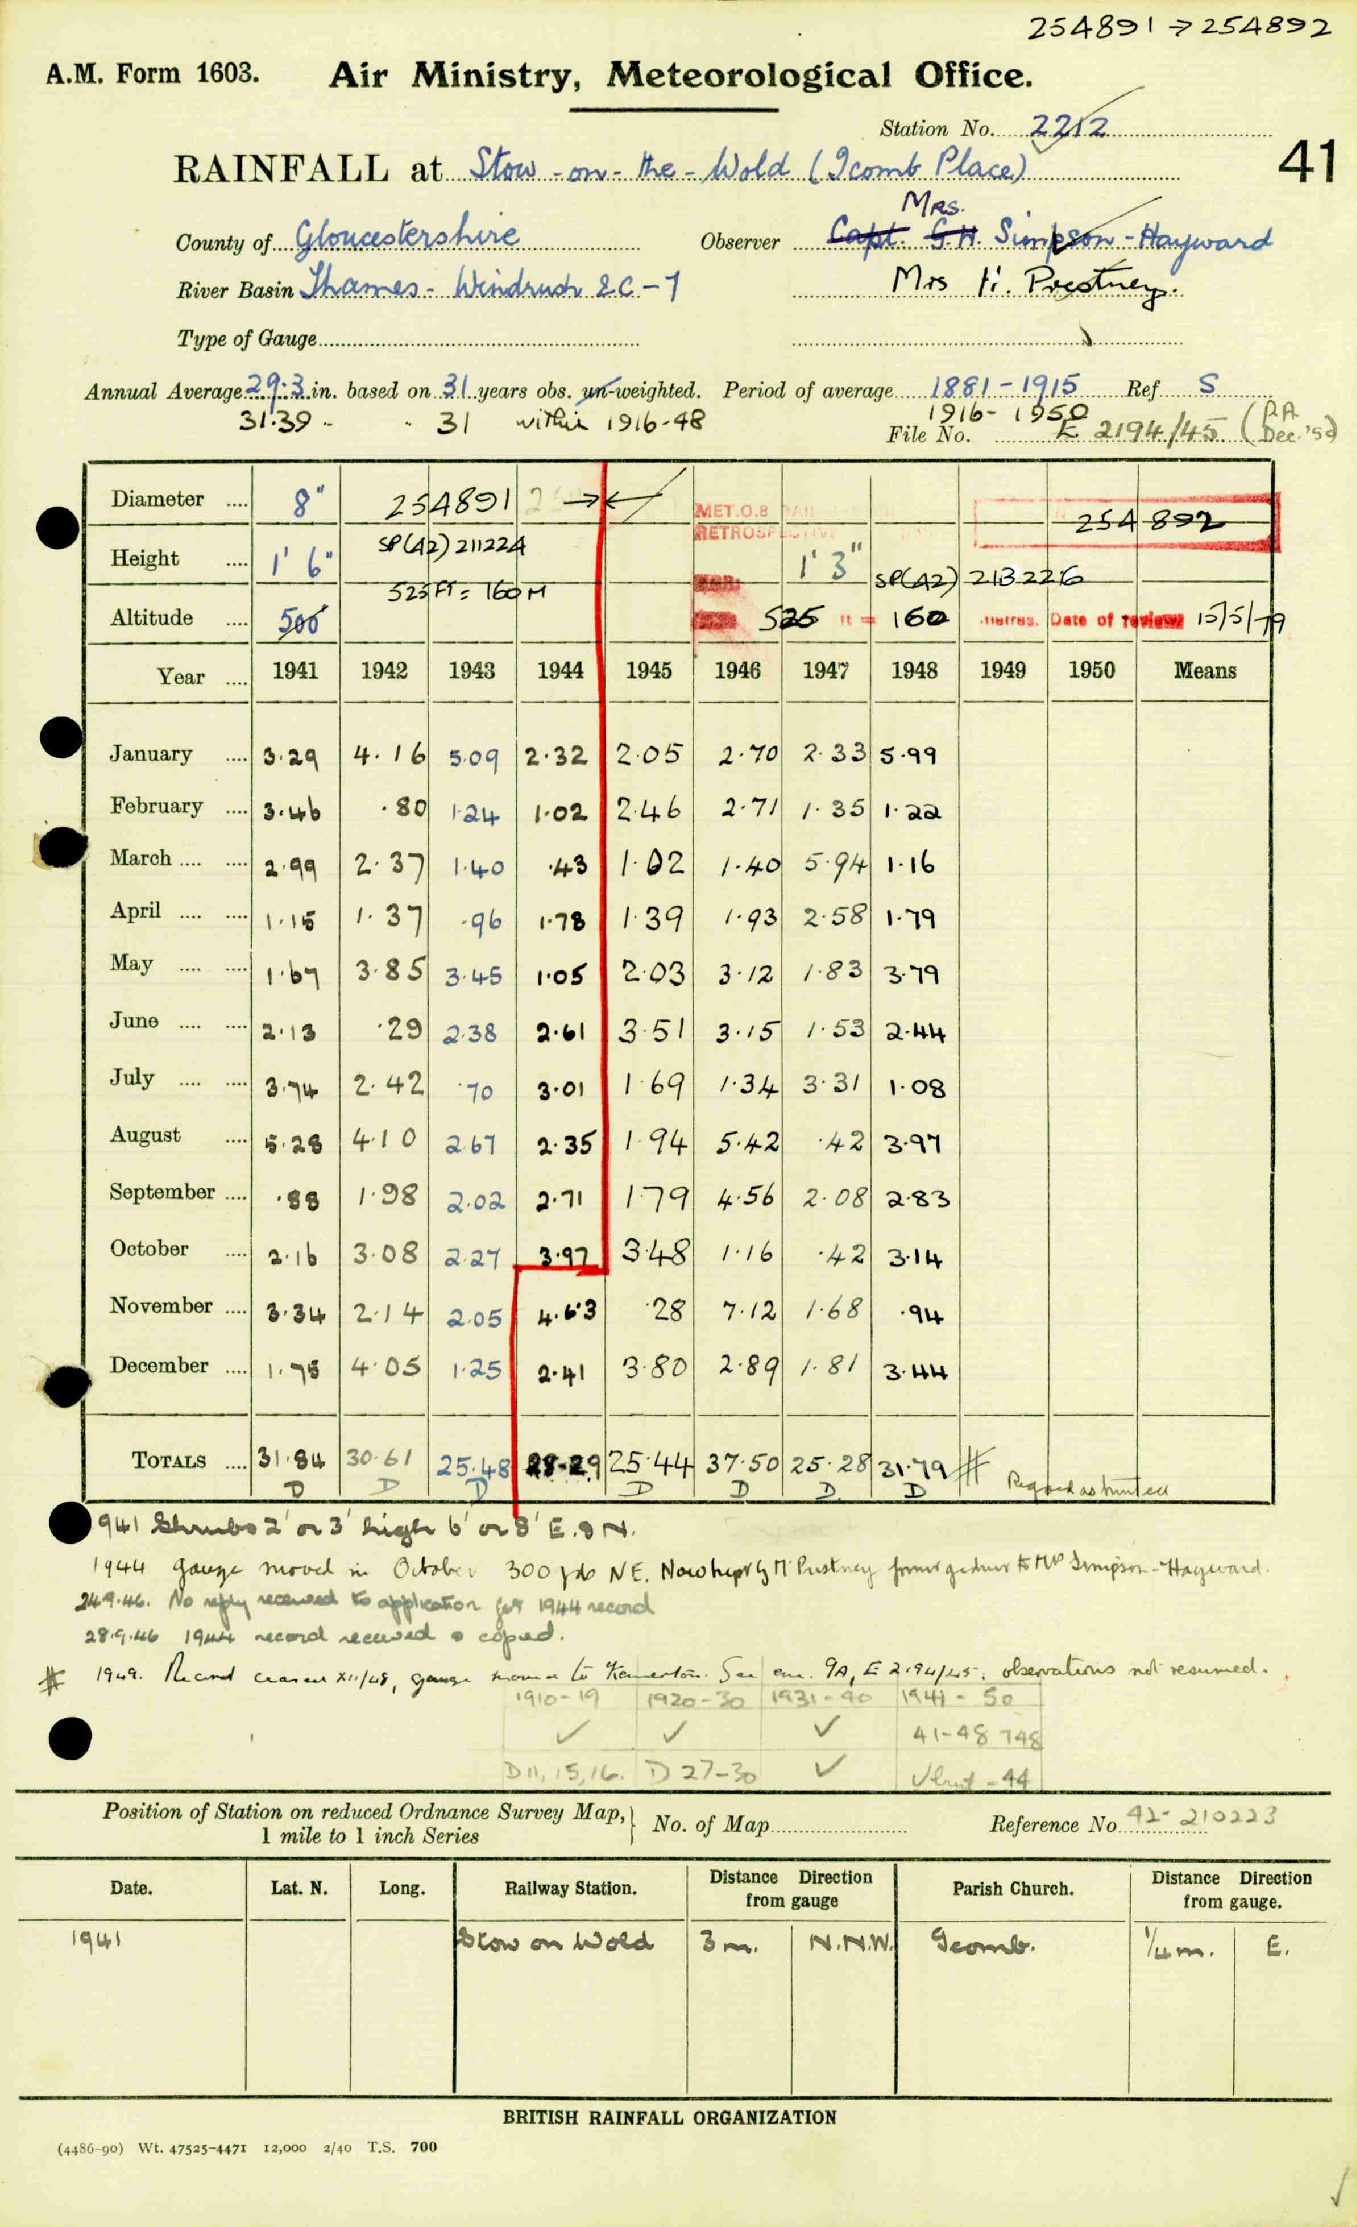 254891 → 254892
A.M. Form 1603. Air Ministry, Meteorological Office.
Station No. 2212
41
RAINFALL at Stow-on-the-Wold (Icomb Place)
Mrs.
County of Gloucestershire Observer Capt. G.H. Simpson-Hayward
River Basin Thames - Windrush &C-7 Mrs H. Prestney.
Type of Gauge
Annual Average 29.3 in. based on 31 years obs. un-weighted. Period of average 1881-1915 Ref S
31.39 31 within 1916-48 1916-1950
File No. E 2194/45 (P.A. Dec. '52)
Diameter 8" 254891 → ← MET.O.8 254892
RETROSPECTIVE
Height 1' 6" SP(42) 211224 1' 3" SP(42) 213226
525 FT = 160 M
Altitude 500 525 ft = 160 metres. Date of review 15/5/79
Year 1941 1942 1943 1944 1945 1946 1947 1948 1949 1950 Means
January 3.29 4.16 5.09 2.32 2.05 2.70 2.33 5.99
February 3.46 .80 1.24 1.02 2.46 2.71 1.35 1.22
March 2.99 2.37 1.40 .43 1.02 1.40 5.94 1.16
April 1.15 1.37 .96 1.78 1.39 1.93 2.58 1.79
May 1.67 3.85 3.45 1.05 2.03 3.12 1.83 3.79
June 2.13 .29 2.38 2.61 3.51 3.15 1.53 2.44
July 3.74 2.42 .70 3.01 1.69 1.34 3.31 1.08
August 5.28 4.10 2.67 2.35 1.94 5.42 .42 3.97
September .88 1.98 2.02 2.71 1.79 4.56 2.08 2.83
October 2.16 3.08 2.27 3.97 3.48 1.16 .42 3.14
November 3.34 2.14 2.05 4.63 .28 7.12 1.68 .94
December 1.75 4.05 1.25 2.41 3.80 2.89 1.81 3.44
TOTALS 31.84 30.61 25.48 28.29 25.44 37.50 25.28 31.79 #
D D D D D D D Regard as printed
1941 Shrubs 2' or 3' high 6' or 8' E. & N.
1944 gauge moved in October 300 yds NE. Now kept by Mr Prestney former gardener to Mrs Simpson-Hayward.
24.9.46. No reply received to application for 1944 record
28.9.46 1944 record received & copied.
# 1949. Record ceased XII/48, gauge moved to Kemerton. See enc. 9A, E 2194/45; observations not resumed.
1910-19 1920-30 1931-40 1941-50
✓ ✓ ✓ 41-48 T48
D 11, 15, 16. D 27-30 ✓ ✓ but -44
Position of Station on reduced Ordnance Survey Map, 1 mile to 1 inch Series } No. of Map Reference No. 42-210223
Date. Lat. N. Long. Railway Station. Distance Direction from gauge Parish Church. Distance Direction from gauge.
1941 Stow on Wold 3 m. N.N.W. Icomb. 1/4 m. E.
BRITISH RAINFALL ORGANIZATION
(4486-90) Wt. 47525-4471 12,000 2/40 T.S. 700